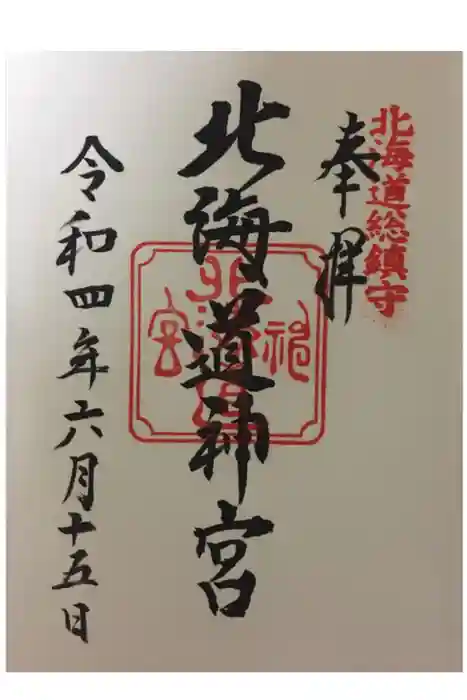 北海道総鎮守
奉拝
北海道神宮
令和四年六月十五日